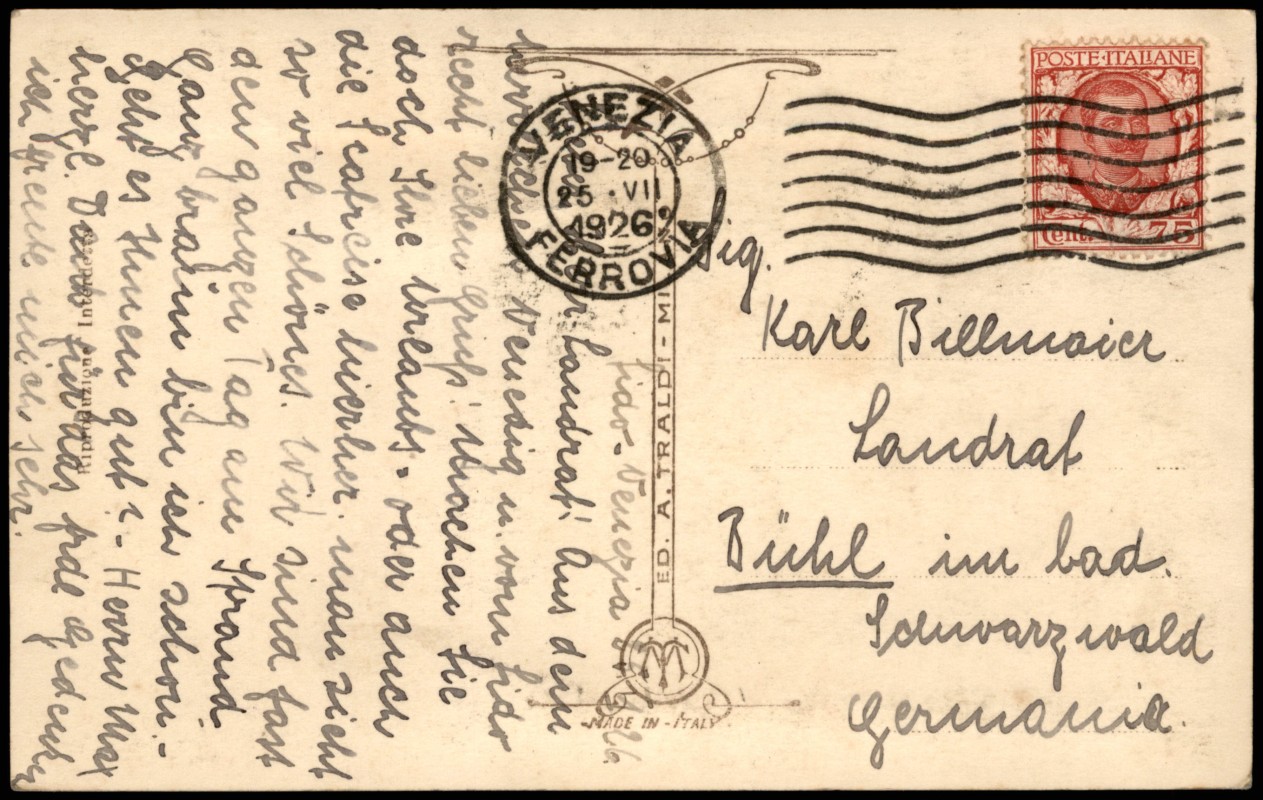 Lido-Venezia
1926
Landrat! Aus dem
Venedig u. vom Lido
recht lieben Gruß! Machen Sie
doch Ihre Urlaubs- oder auch
die Reise hierher. man sieht
so viel Schönes. Wir sind fast
den ganzen Tag am Strand
Ganz braun bin ich schon. -
Geht es Ihnen gut? - Herrn Max
herzl. Dank für das frdl Gedenken
ich freute mich sehr.
Riproduzioni Interdette
ED. A. TRALDI - MI
MADE IN - ITALY
VENEZIA
19-20
25 · VII
1926
FERROVIA
POSTE·ITALIANE
Cent. 75
Sig.
Karl Billmaier
Landrat
Bühl im bad.
Schwarzwald
Germania.